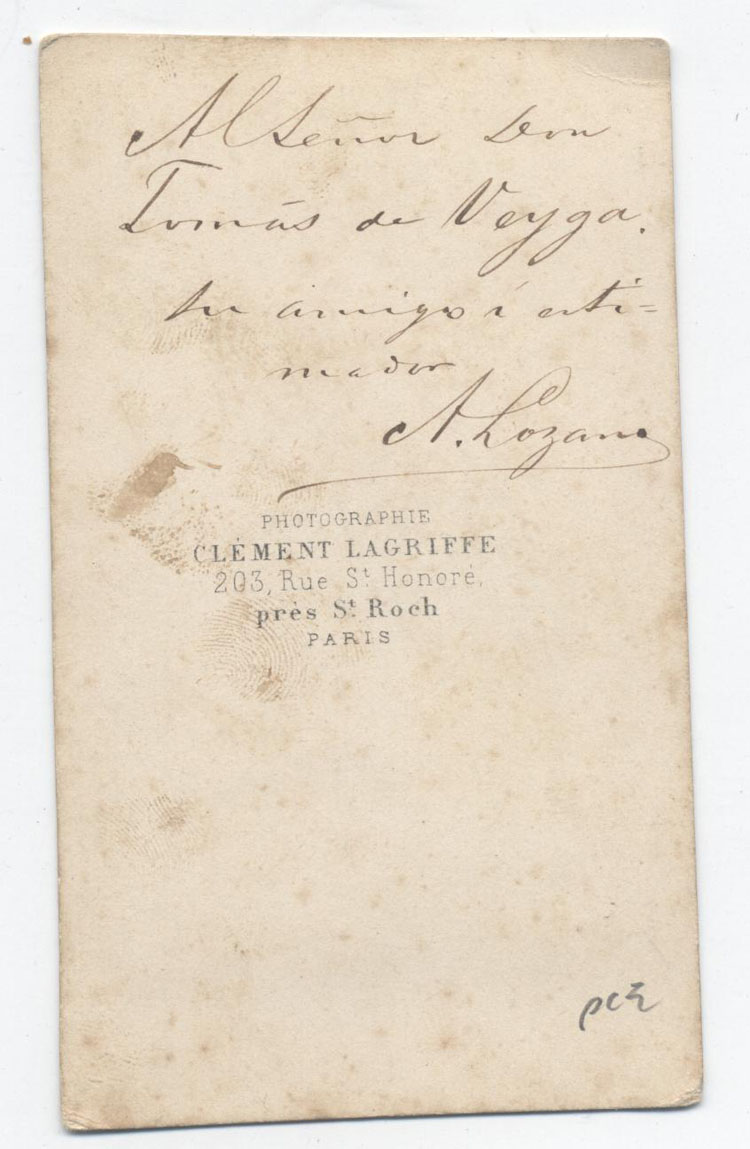 Al Señor Don
Tomás de Veyga.
su amigo i esti=
mador
A. Lozano
PHOTOGRAPHIE
CLÉMENT LAGRIFFE
203, Rue St Honoré,
près St Roch
PARIS